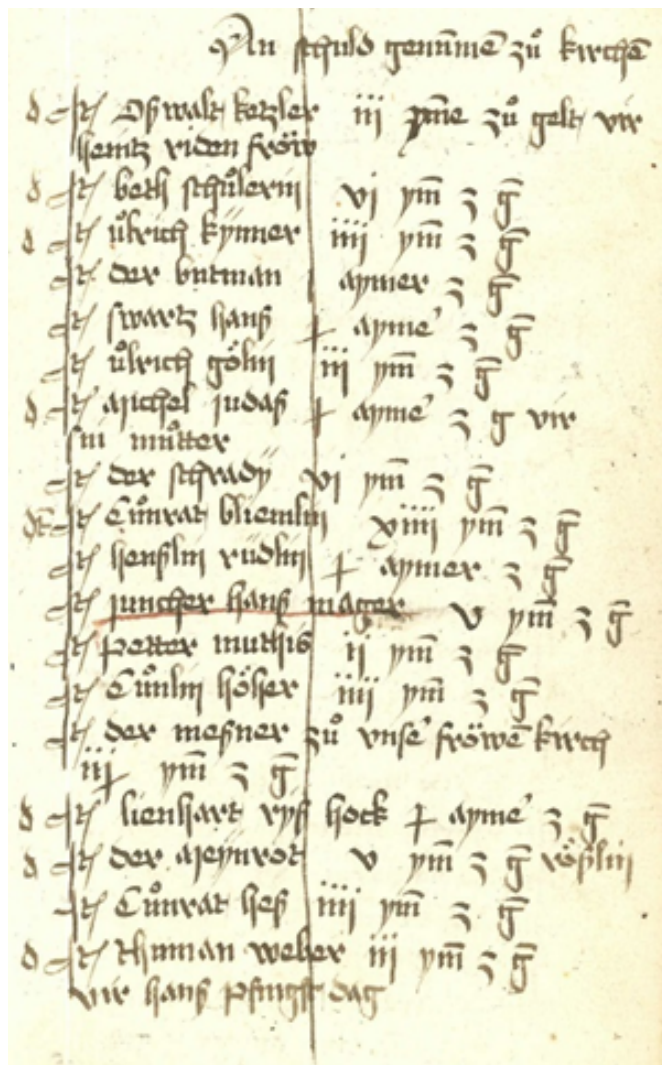 An schuld genūmē zů kirchē
d tͤ Oßwalt ketzler iii ymē zů gelt vir
heintz riden fröw
d tͤ beth schůlerin vi ym̄ z g̅
d tͤ ůlrich kÿmer iiii ym̄ z g̅
tͤ der buman i aymer z g̅
tͤ swartz hanß ɫ aymeˀ z g̅
tͤ ůlrich gölin iii ym̄ z g̅
d tͤ michel judaß ɫ aymeˀ z g vir
sin můtter
tͤ der schradÿ vi ym̄ z g̅
tͤ Cůnrat bliemlin xiiii ym̄ z g̅
tͤ henßlin rüdlin ɫ aymer z g̅
tͤ juncher hanß mager v ym̄ z g̅
tͤ petter muthis ii ym̄ z g̅
tͤ Cůnlin höher iiii ym̄ z g̅
tͤ der meßner zů vnseˀ fröwē kirch
ym̄ z g̅
d tͤ lienhart ryß hock ɫ aymeˀ z g̅
d tͤ der v ym̄ z g̅ rößlin
tͤ Cůnrat heß iiii ym̄ z g̅
d tͤ thuman weber iii ym̄ z g̅
vir hanß pfingst dag